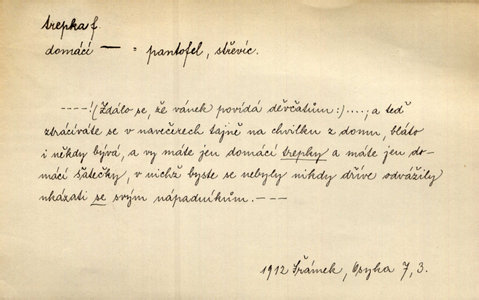 trepka f.
domácí — = pantofel, střevíc.
----!(Zdálo se, že vánek povídá děvčatům:)....; a teď
ztrácíváte se v navečerech tajně na chvilku z domu, bláto
i někdy bývá, a vy máte jen domácí trepky a máte jen do-
mácí šatečky, v nichž byste se nebyly nikdy dříve odvážily
ukázati se svým nápadníkům. ---
1912 Šrámek, Osyka 7, 3.